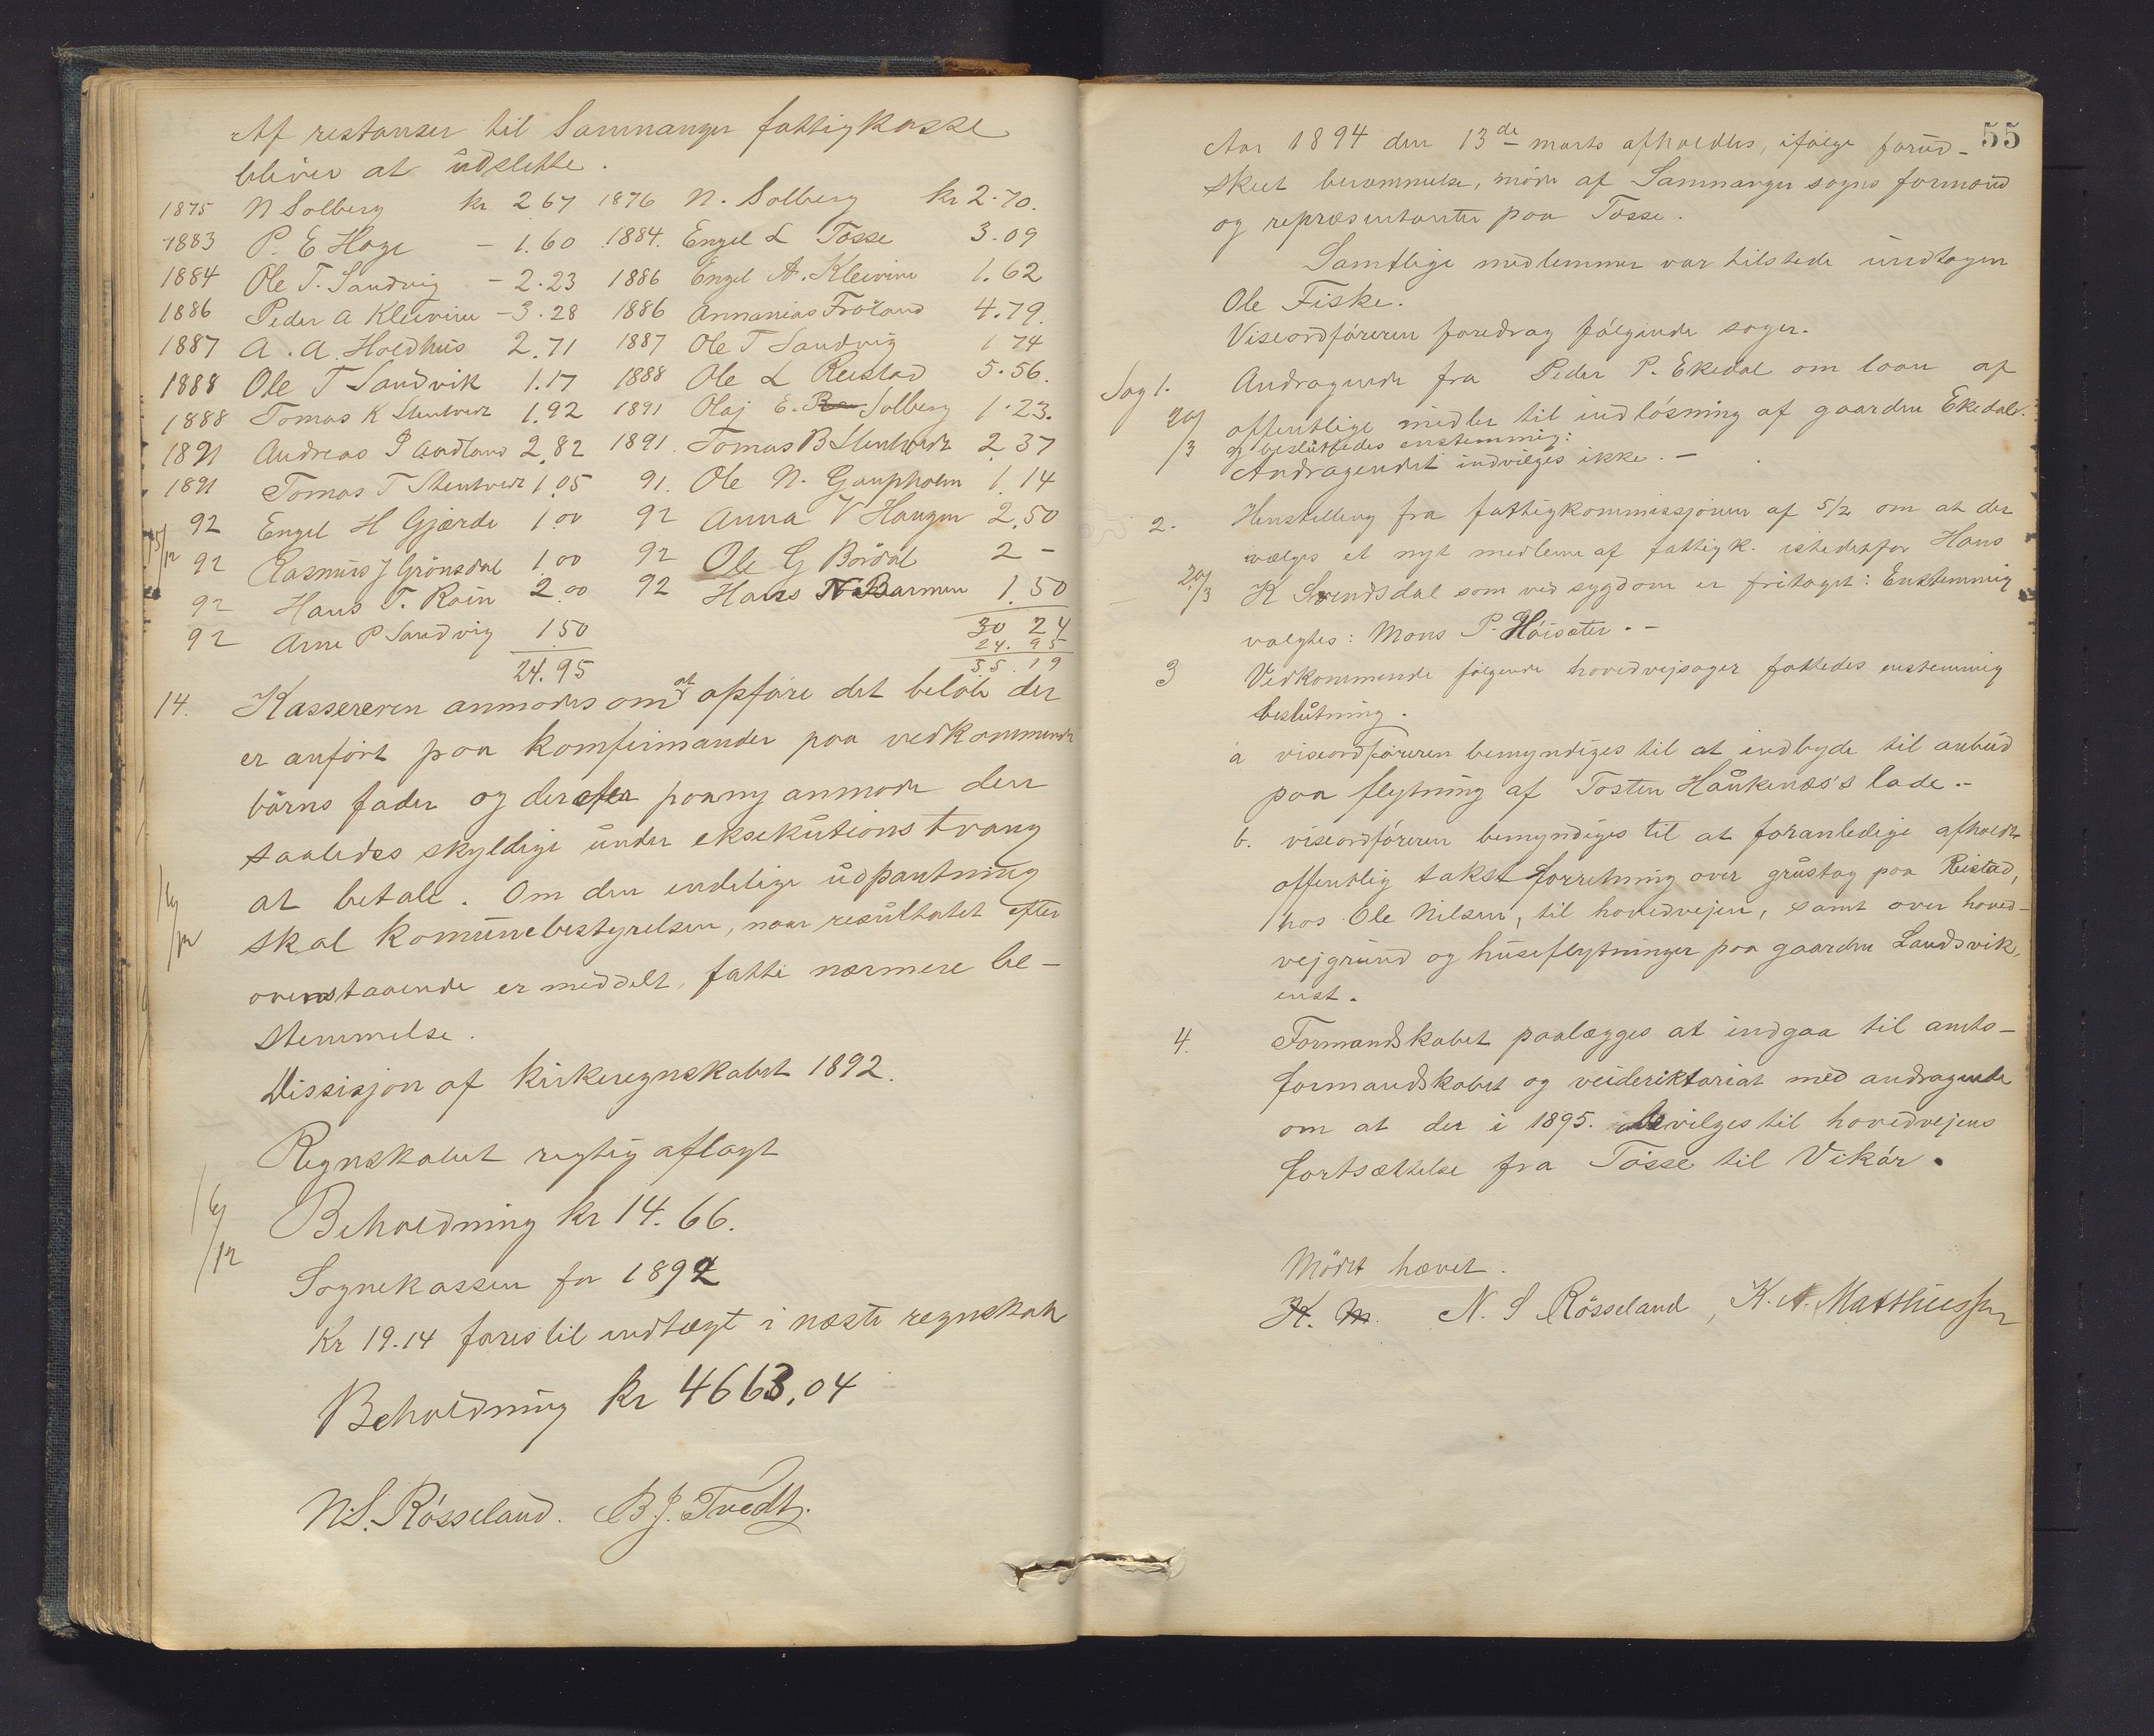 Af restanser til Samnanger fattigkasse
bliver at udslette.
1875 N Solberg kr 2 67 1876 N. Solberg kr 2.70.
1883 P. E Hage - 1.60 1884. Engel L Tøsse 3.09
1884 Ole T. Sandvig - 2.23 1886 Engel A. Kleivene 1.62
1886 Peder A Kleivene - 3.28 1886 Annanias Frøland 4.79.
1887 A. A. Holdhus 2.71 1887 Ole T Sandvig 1 74
1888 Ole T Sandvik 1.17 1888 Ole L Reistad 5.56.
1888 Tomas K Stentvedt 1.92 1891 Olaj E. Solberg 1.23.
1891 Andreas I Aadland 2.82 1891. Tomas B Stentvedt 2 37
1891 Tomas T Stentvedt 1.05 91. Ole N. Gaupholm 1.14
92 Engel H Gjærde 1.00 92 Anna V Haugen 2.50
92 Rasmus J Grønsdal 1.00 92 Ole G Børdal 2 -
92 Hans T. Roin 2.00 92 Hans N Barmen 1.50
92 Arne P Sandvig 1.50 30 24
24.95
24.95 55.19
14. Kassereren anmodes om at opføre det beløb der
er anført paa komfirmander paa vedkommende
børns fader og derefter paany anmode den
saaledes skyldige under eksekutions tvang
at betale. Om den endelige udpantning
skal komunebestyrelsen, naar resultatet efter
ovenstaaende er meddelt, fatte nærmere be-
stemmelse.
Dissisjon af kirkeregnskabet 1892.
Regnskabet rigtig aflagt
16/12 Beholdning kr 14.66.
Sognekassen for 1892
Kr 19.14 føres til indtægt i næste regnskab
Beholdning kr 4663,04
N.S. Røsseland. B J. Tvedt.
55
Aar 1894 den 13de marts afholdtes, ifølge forud-
skeet berammelse, møde af Samnanger sogns formænd
og repræsentanter paa Tøsse.
Samtlige medlemmer var tilstede undtagen
Ole Fiske.
Viseordføreren foredrag følgende sager.
Sag 1. Andragende fra Peder P. Ekedal om laan af
20/3 offentlige midler til indløsning af gaarden Ekedal.
og besluttedes enstemmig:
Andragendet indvilges ikke. -
2. Henstilling fra fattigkommissjonen af 5/2 om at der
vælges et nyt medlem af fattigk. istedetfor Hans
20/3 K Svendsdal som ved sygdom er fritaget: Enstemmig
valgtes: Mons P. Høisæter. -
3 Vedkommende følgende hovedvejsager fattedes enstemmig
beslutning.
a viseordføreren bemyndiges til at indbyde til anbud
paa flytning af Tosten Håukenæs's lade. -
b. viseordføreren bemyndiges til at foranledige afholdt
offentlig takstforretning over grustag paa Reistad,
hos Ole Nilsen, til hovedvejen, samt over hoved-
vejgrund og huseflytninger paa gaarden Landsvik,
enst.
4. Formandskabet paalægges at indgaa til amts-
formandskabet og veideriktoriat med andragende
om at der i 1895. bevilges til hovedvejens
fortsættelse fra Tøsse til Vikør.
Mødet hævet.
K. M. N. S Røsseland, K. N. Matthiessen